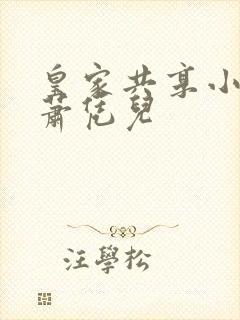 皇家共享小
蕭凭兒
汪學松